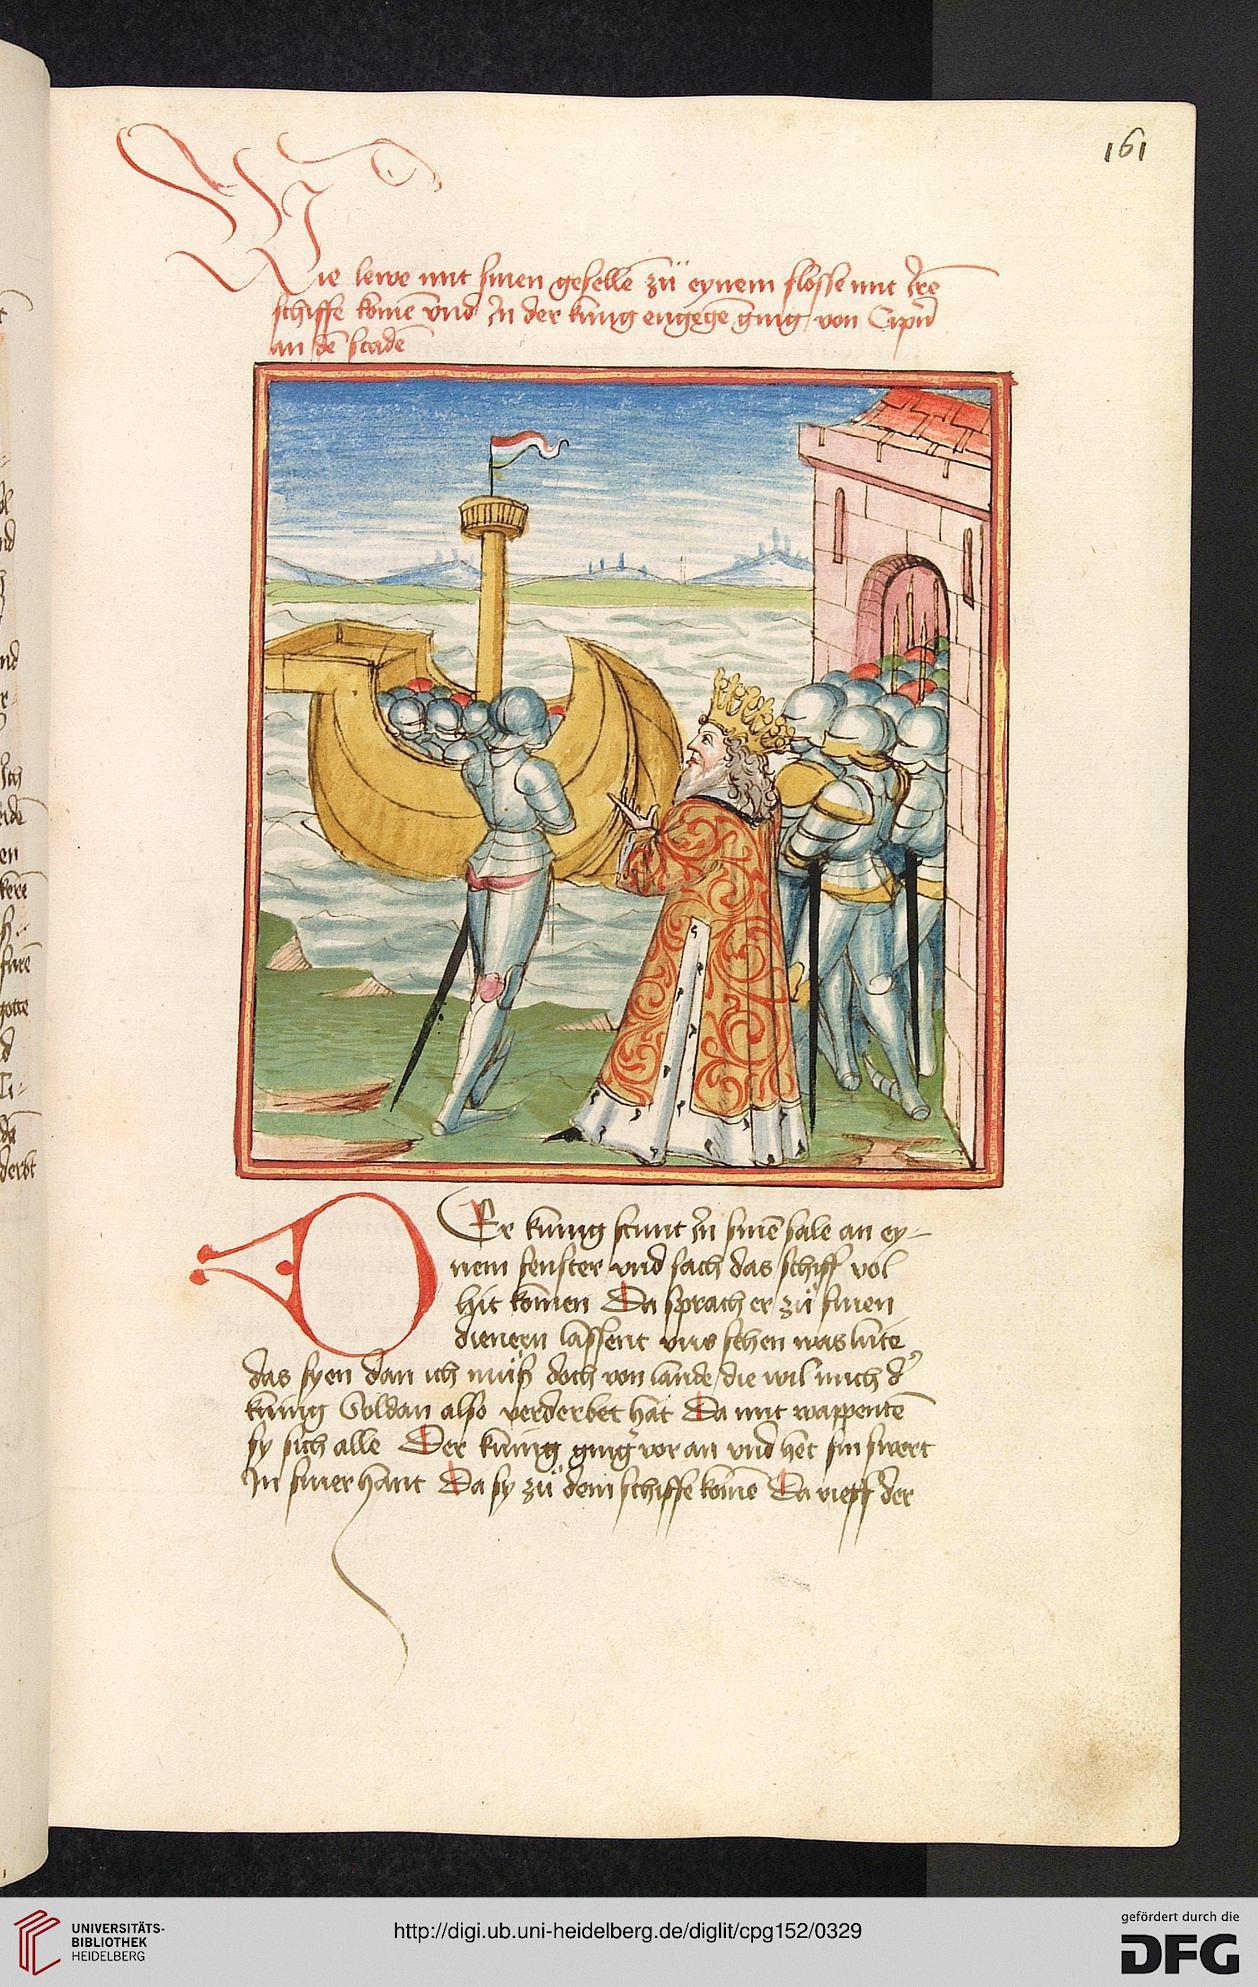 161
Wie lewe mit sinen geselle͂ zü eynem slosse mit ire͂
schiffe kome͂ vnd in der kunig engege͂ ging von Cipern
an de͂ stade͂
DEr kunig stunt in sine͂ sale an ey-
nem fenster vnd sach das schiff vol
lüt komen Da sprach er zü sinen
dienern lassent vns sehen was lüte
das syen dan ich müß doch von lande die wil mich d'
kunig Soldan also verderbet hat Da mit wappente͂
sy sich alle Der kunig ging vor an vnd het sin swert
In siner hant Da sy zü dem schiffe kome͂ Da rieff der
UNIVERSITÄTS-
BIBLIOTHEK
HEIDELBERG
http://digi.ub.uni-heidelberg.de/diglit/cpg152/0329
gefördert durch die
DFG